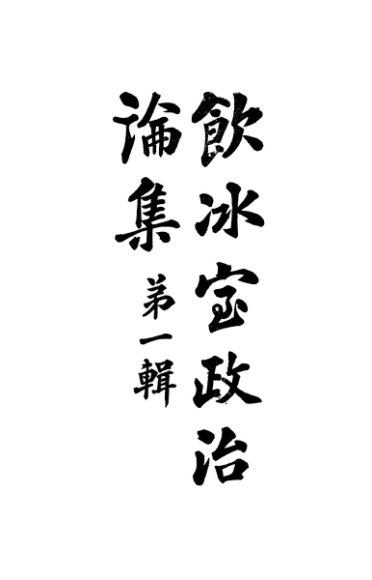 飲冰室政治
論集第一輯